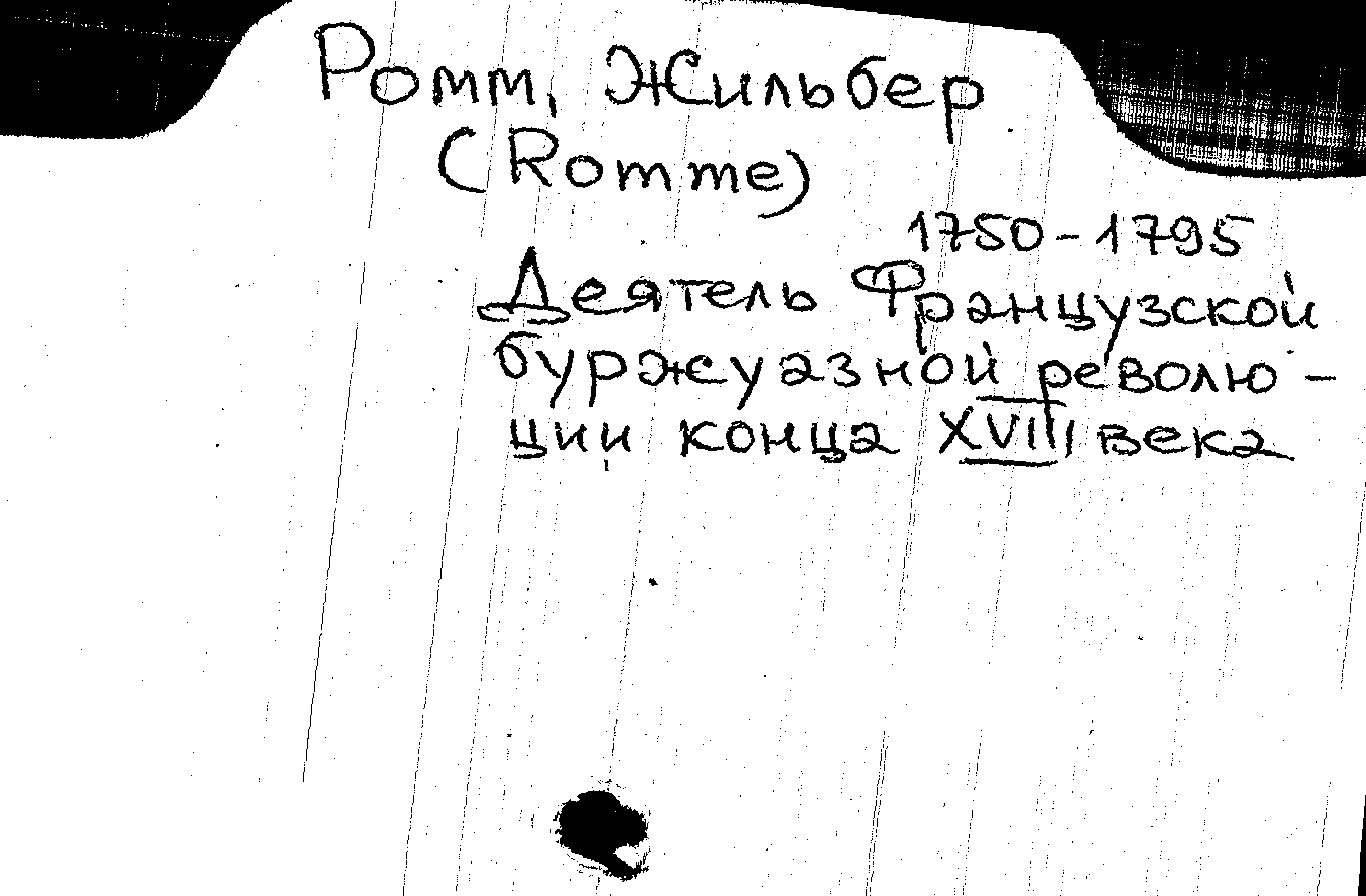 Ромм, Жильбер
(Romme)
1750-1795
Деятель Французской
буржуазной револю-
ции конца XVIII века